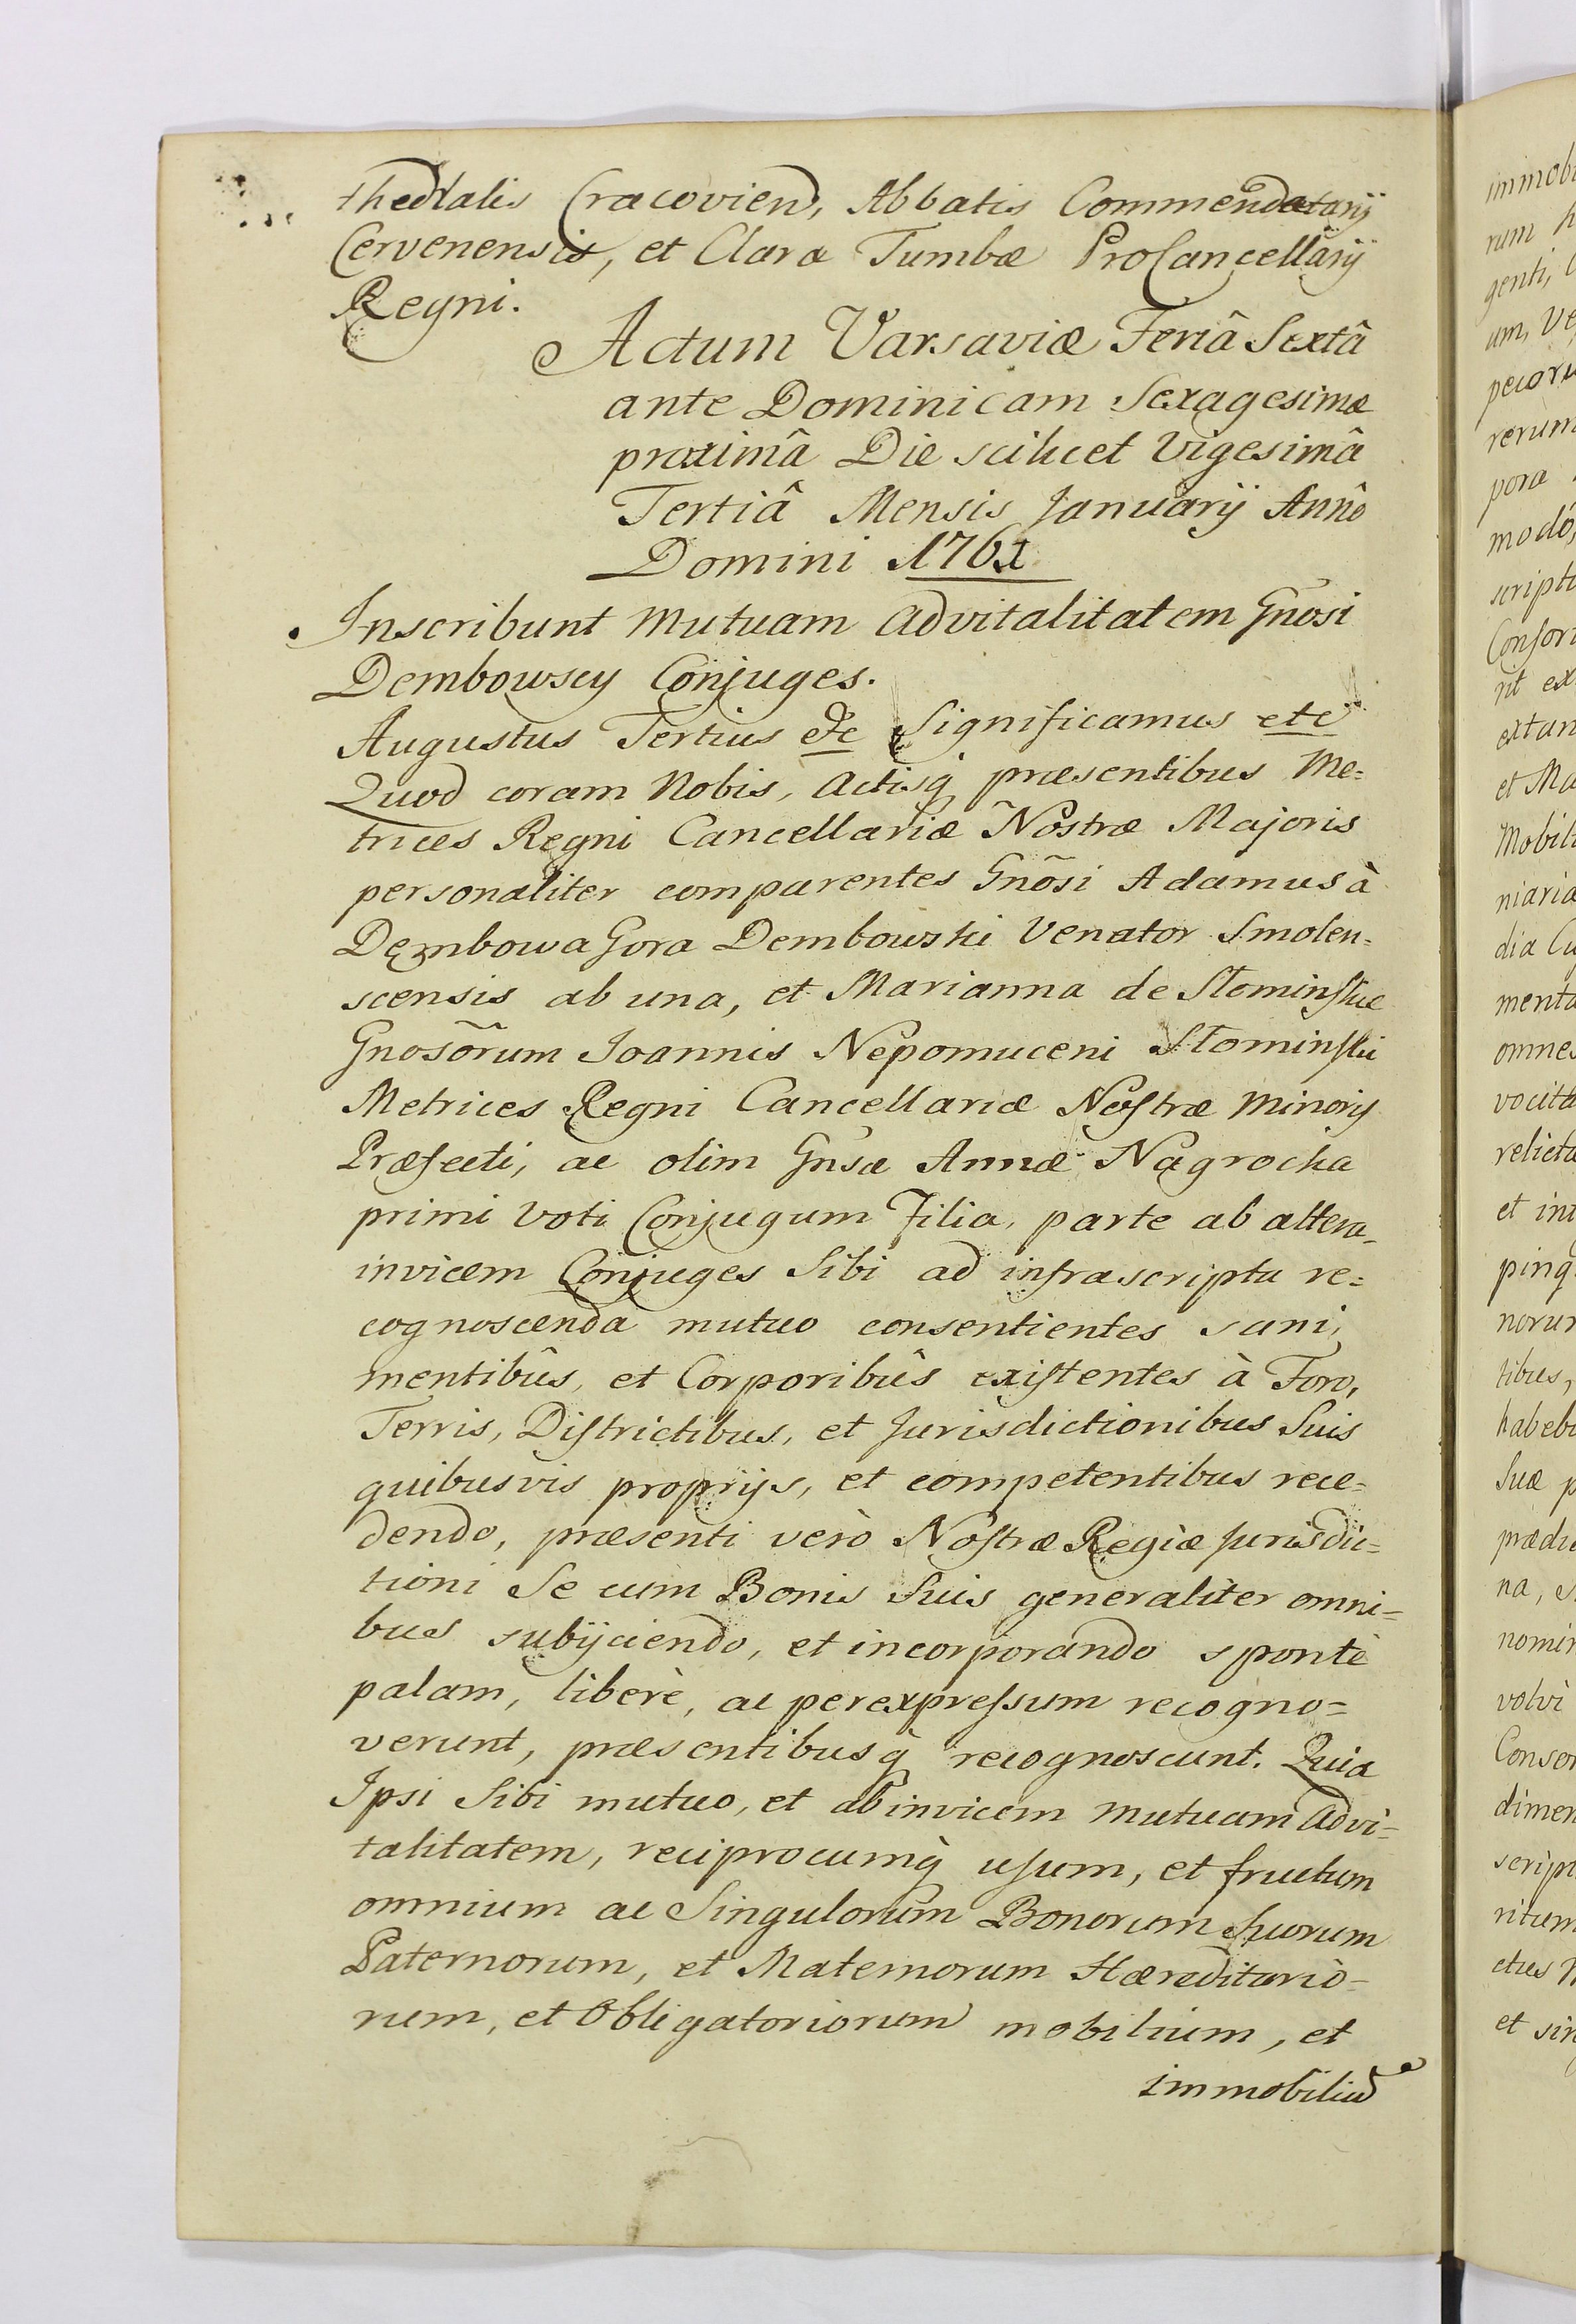 thedralis Cracovien, Abbatis Commendatarij
Cervenensis, et Clara Tumbæ ProCancellarij
Regni.
Actum Varsaviæ Feriâ Sextâ
ante Dominicam Sexagesimæ
proximâ Die scilicet Vigesimâ
Tertiâ Mensis Januarij Annô
Domini 1761.
Inscribunt Mutuam advitalitatem Gnosi
Dembowscy Conjuges.
Augustus Tertius &c Significamus etc
Quod coram Nobis, Actisq̀ præsentibus Me=
trices Regni Cancellariæ Nostræ Majoris
personaliter comparentes Gnõsi Adamus à
Dęmbowa Gora Dembowski Venator Smolen=
scensis ab una, et Marianna de Słominskie
Gnosõrum Joannis Nepomuceni Słominski
Metrices Regni Cancellariæ Nostræ Minoris
Præfecti, ac olim Gnsæ Annæ Nagrocka
primi Voti Conjugum Filia, parte ab altera,
invicem Conjuges Sibi ad infrascripta re=
cognoscenda mutuo consentientes sani,
mentibûs, et Corporibûs existentes à Foro,
Terris, Districtibus, et Jurisdictionibus Suis
quibusvis proprijs, et competentibus rece=
dendo, præsenti verò Nostræ Regiæ Jurisdic=
tioni Se cum Bonis Suis generaliter omni=
bus subijciendo, et incorporando spontè
palam, liberè, ac perexpressum recogno=
verunt, præsentibusq̀ recognoscunt. Quia
Ipsi Sibi mutuo, et ab invicem mutuam Advi=
talitatem, reciprocumq̀ usum, et fructum
omnium ac Singulorum Bonorum Suorum
Paternorum, et Maternorum Hæreditario=
rum, et Obligatoriorum mobilium, et
immobiliu
immob
rum h
genti,
um, Ve
pecoru
rerum
pora
modô,
scripta
Consor
rit ex
extan
et Ma
Mobili
niaria
dia Cu
menta
omnes
vocita
relicta
et int
pinq̀
norum
tibus,
habebi
Suæ p
prædi
na, s
nomin
volvi
Conso
dimen
script
ritum
ctus
et sin